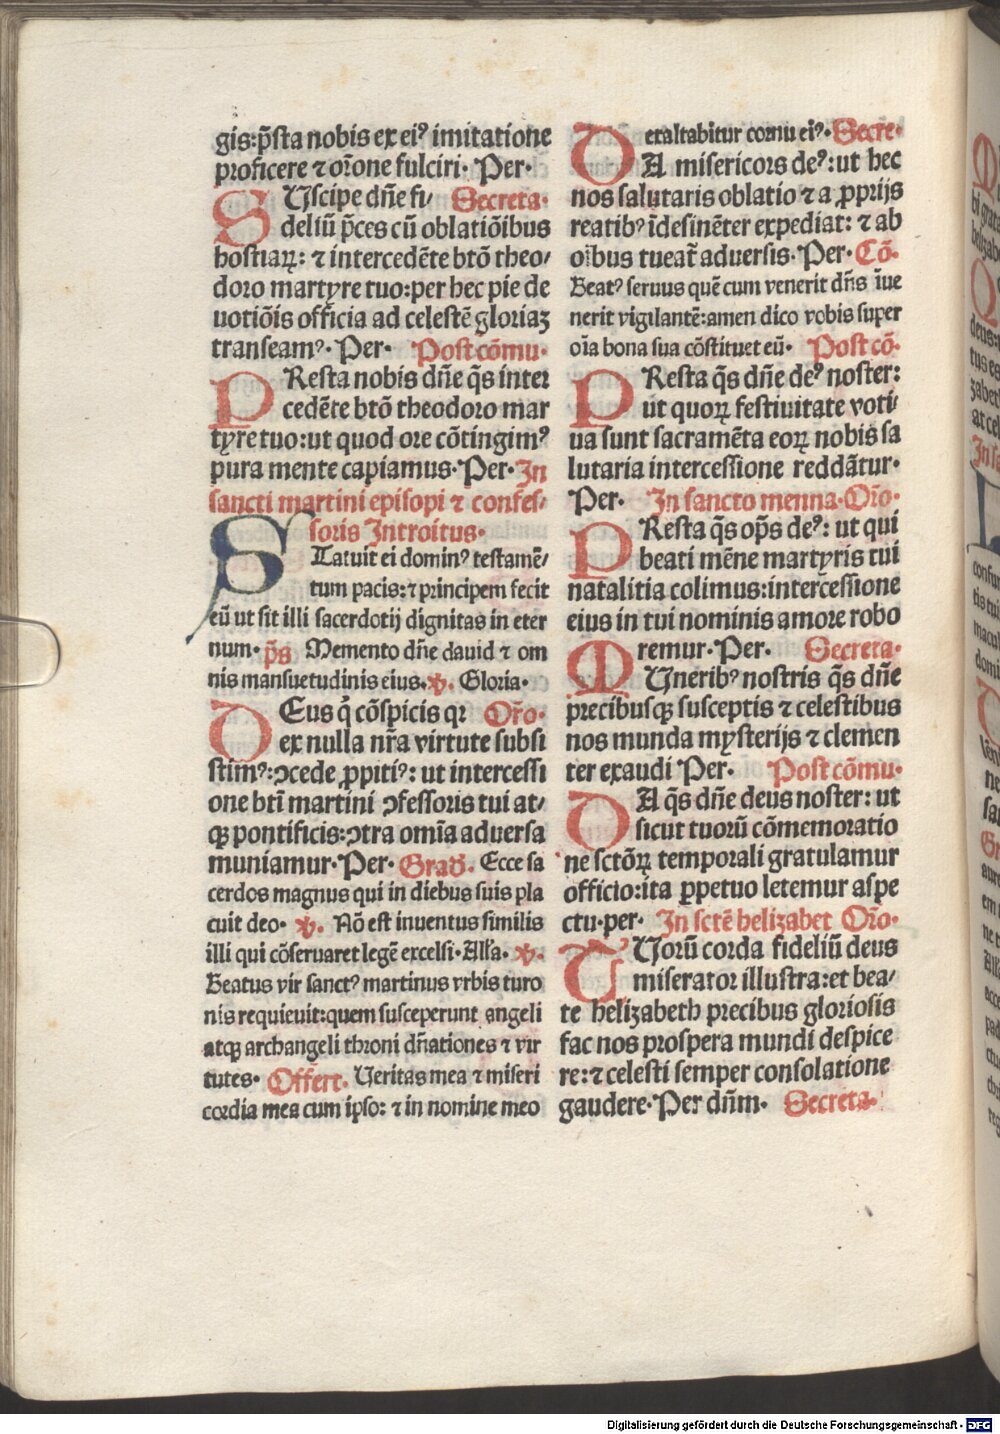 gis:p̄sta nobis ex ei⁹ imitatione
proficere ⁊ or̄one fulciri· Per·
SUscipe dn̄e fi/ Secreta·
deliū p̄ces cū oblatiōibus
hostiaꝝ: ⁊ intercedēte btō theo/
doro martyre tuo:per hec pie de
uotiōis officia ad celestē gloriaꝫ
transeam⁹· Per· Post cōmu·
PResta nobis dn̄e q̄s inter
cedēte btō theodoro mar
tyre tuo:ut quod ore cōtingim⁹
pura mente capiamus·Per·In
sancti martini episopi ⁊ confes/
soris Introitus·
STatuit ei domin⁹ testamē/
tum pacis:⁊ principem fecit
eū ut sit illi sacerdotij dignitas in eter
num· p̄s Memento dn̄e dauid ⁊ om
nis mansuetudinis eius·℣· Gloria·
DEus q̄ cōspicis qꝛ Or̄o·
ex nulla nr̄a virtute subsi
stim⁹:ↄcede ꝓpiti⁹: ut intercessi
one btī martini ↄfessoris tui at/
qꝫ pontificis:ↄtra omīa aduersa
muniamur·Per· Grad̄. Ecce sa
cerdos magnus qui in diebus suis pla
cuit deo· ℣. Nō est inuentus similis
illi qui cōseruaret legē excelsi·All'a· ℣.
Beatus vir sanct⁹ martinus vrbis turo
nis requieuit:quem susceperunt angeli
atqꝫ archangeli throni dn̄ationes ⁊ vir
tutes· Offert. Ueritas mea ⁊ miseri
cordia mea cum ipso: ⁊ in nomine meo
et altabitur cornu ei⁹· Secre·
DA misericors de⁹:ut hec
nos salutaris oblatio ⁊ a ꝓprijs
reatib⁹ īdesinēter expediat: ⁊ ab
oībus tueat̄ aduersis· Per· Cō·
Beat⁹ seruus quē cum venerit dn̄s īue
nerit vigilantē:amen dico vobis super
oīa bona sua cōstituet eū· Post cō·
PResta q̄s dn̄e de⁹ noster:
ut quoꝝ festiuitate voti/
ua sunt sacramēta eoꝝ nobis sa
lutaria intercessione reddātur·
Per· In sancto menna·Or̄o·
PResta q̄s op̄s de⁹: ut qui
beati mēne martyris tui
natalitia colimus:intercessione
eius in tui nominis amore robo
remur·Per· Secreta·
MUnerib⁹ nostris q̄s dn̄e
precibusqꝫ susceptis ⁊ celestibus
nos munda mysterijs ⁊ clemen
ter exaudi Per· Post cōmu·
DA q̄s dn̄e deus noster: ut
sicut tuorū cōmemoratio
ne sctōꝝ temporali gratulamur
officio:ita ꝑpetuo letemur aspe
ctu·per· In sctē helizabet Or̄o·
TUorū corda fideliū deus
miserator illustra:et bea/
te helizabeth precibus gloriosis
fac nos prospera mundi despice
re:⁊ celesti semper consolatione
gaudere·Per dn̄m· Secreta·
Digitalisierung gefördert durch die Deutsche Forschungsgemeinschaft · DFG